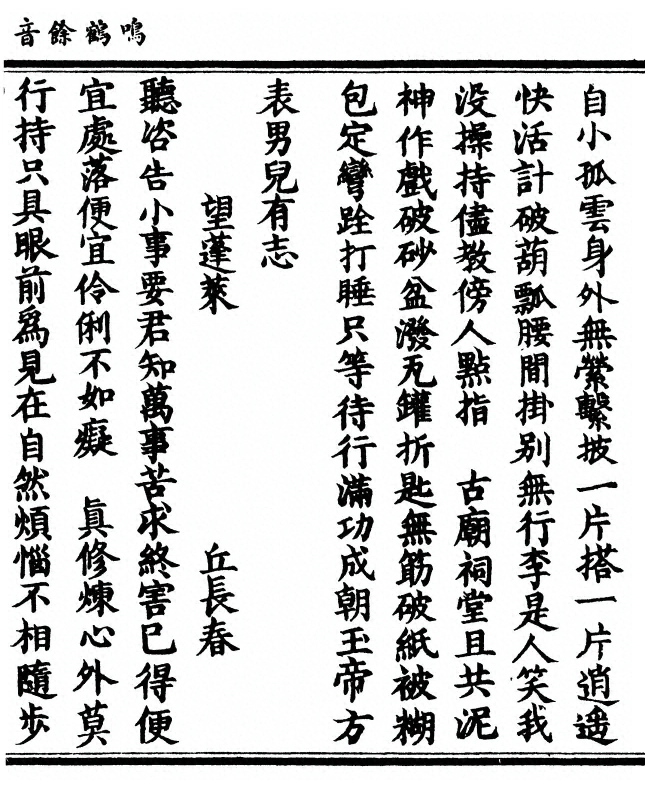 鳴鶴餘音
自小孤雲身外無縈繫披一片搭一片逍遥
快活計破葫瓢腰間掛别無行李是人笑我
没操持儘教傍人點指　古廟祠堂且共泥
神作戲破砂盆潑瓦罐折匙無筯破紙被糊
包定彎跧打睡只等待行滿功成朝玉帝方
表男兒有志
望蓬萊　丘長春
聽咨告小事要君知萬事苦求終害已得便
宜處落便宜伶俐不如癡　眞修煉心外莫
行持只具眼前爲見在自然煩惱不相隨歩